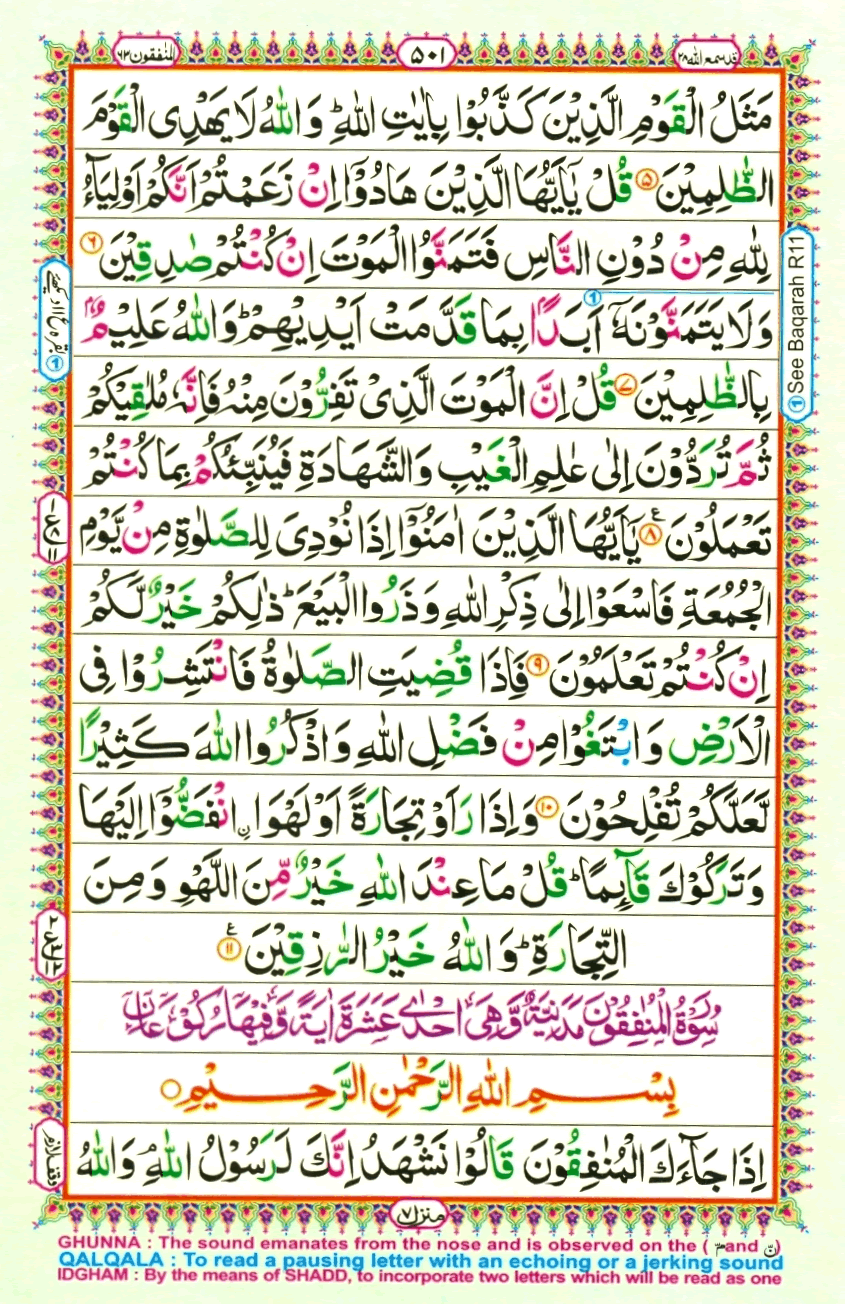 قد سمع الله ٢٨
٥٠١
المنفقون ٦٣
مَثَلُ الْقَوْمِ الَّذِيْنَ كَذَّبُوْا بِاٰيٰتِ اللّٰهِ ؕ وَ اللّٰهُ لَا يَهْدِى الْقَوْمَ
الظّٰلِمِيْنَ ۝۵ قُلْ يٰۤاَيُّهَا الَّذِيْنَ هَادُوْۤا اِنْ زَعَمْتُمْ اَنَّكُمْ اَوْلِيَآءُ
لِلّٰهِ مِنْ دُوْنِ النَّاسِ فَتَمَنَّوُا الْمَوْتَ اِنْ كُنْتُمْ صٰدِقِيْنَ ۝۶
وَ لَا يَتَمَنَّوْنَهٗۤ اَبَدًۢا بِمَا قَدَّمَتْ اَيْدِيْهِمْ ؕ وَ اللّٰهُ عَلِيْمٌۢ
بِالظّٰلِمِيْنَ ۝۷ قُلْ اِنَّ الْمَوْتَ الَّذِىْ تَفِرُّوْنَ مِنْهُ فَاِنَّهٗ مُلٰقِيْكُمْ
ثُمَّ تُرَدُّوْنَ اِلٰى عٰلِمِ الْغَيْبِ وَ الشَّهَادَةِ فَيُنَبِّئُكُمْ بِمَا كُنْتُمْ
تَعْمَلُوْنَ ۝۸ يٰۤاَيُّهَا الَّذِيْنَ اٰمَنُوْۤا اِذَا نُوْدِىَ لِلصَّلٰوةِ مِنْ يَّوْمِ
الْجُمُعَةِ فَاسْعَوْا اِلٰى ذِكْرِ اللّٰهِ وَ ذَرُوا الْبَيْعَ ؕ ذٰلِكُمْ خَيْرٌ لَّكُمْ
اِنْ كُنْتُمْ تَعْلَمُوْنَ ۝۹ فَاِذَا قُضِيَتِ الصَّلٰوةُ فَانْتَشِرُوْا فِى
الْاَرْضِ وَ ابْتَغُوْا مِنْ فَضْلِ اللّٰهِ وَ اذْكُرُوا اللّٰهَ كَثِيْرًا
لَّعَلَّكُمْ تُفْلِحُوْنَ ۝۱۰ وَ اِذَا رَاَوْا تِجَارَةً اَوْ لَهْوَاۨ انْفَضُّوْۤا اِلَيْهَا
وَ تَرَكُوْكَ قَآئِمًا ؕ قُلْ مَا عِنْدَ اللّٰهِ خَيْرٌ مِّنَ اللَّهْوِ وَ مِنَ
التِّجَارَةِ ؕ وَ اللّٰهُ خَيْرُ الرّٰزِقِيْنَ ۝۱۱
سُوْرَةُ الْمُنٰفِقُوْنَ مَدَنِيَّةٌ وَّهِىَ اِحْدٰى عَشَرَةَ اٰيَةً وَّفِيْهَا رُكُوْعَانِ
بِسْمِ اللّٰهِ الرَّحْمٰنِ الرَّحِيْمِ
اِذَا جَآءَكَ الْمُنٰفِقُوْنَ قَالُوْا نَشْهَدُ اِنَّكَ لَرَسُوْلُ اللّٰهِ ۘ وَ اللّٰهُ
① See Baqarah R11
وقف لازم
منزل ۷
GHUNNA : The sound emanates from the nose and is observed on the ( مّ and نّ )
QALQALA : To read a pausing letter with an echoing or a jerking sound
IDGHAM : By the means of SHADD, to incorporate two letters which will be read as one